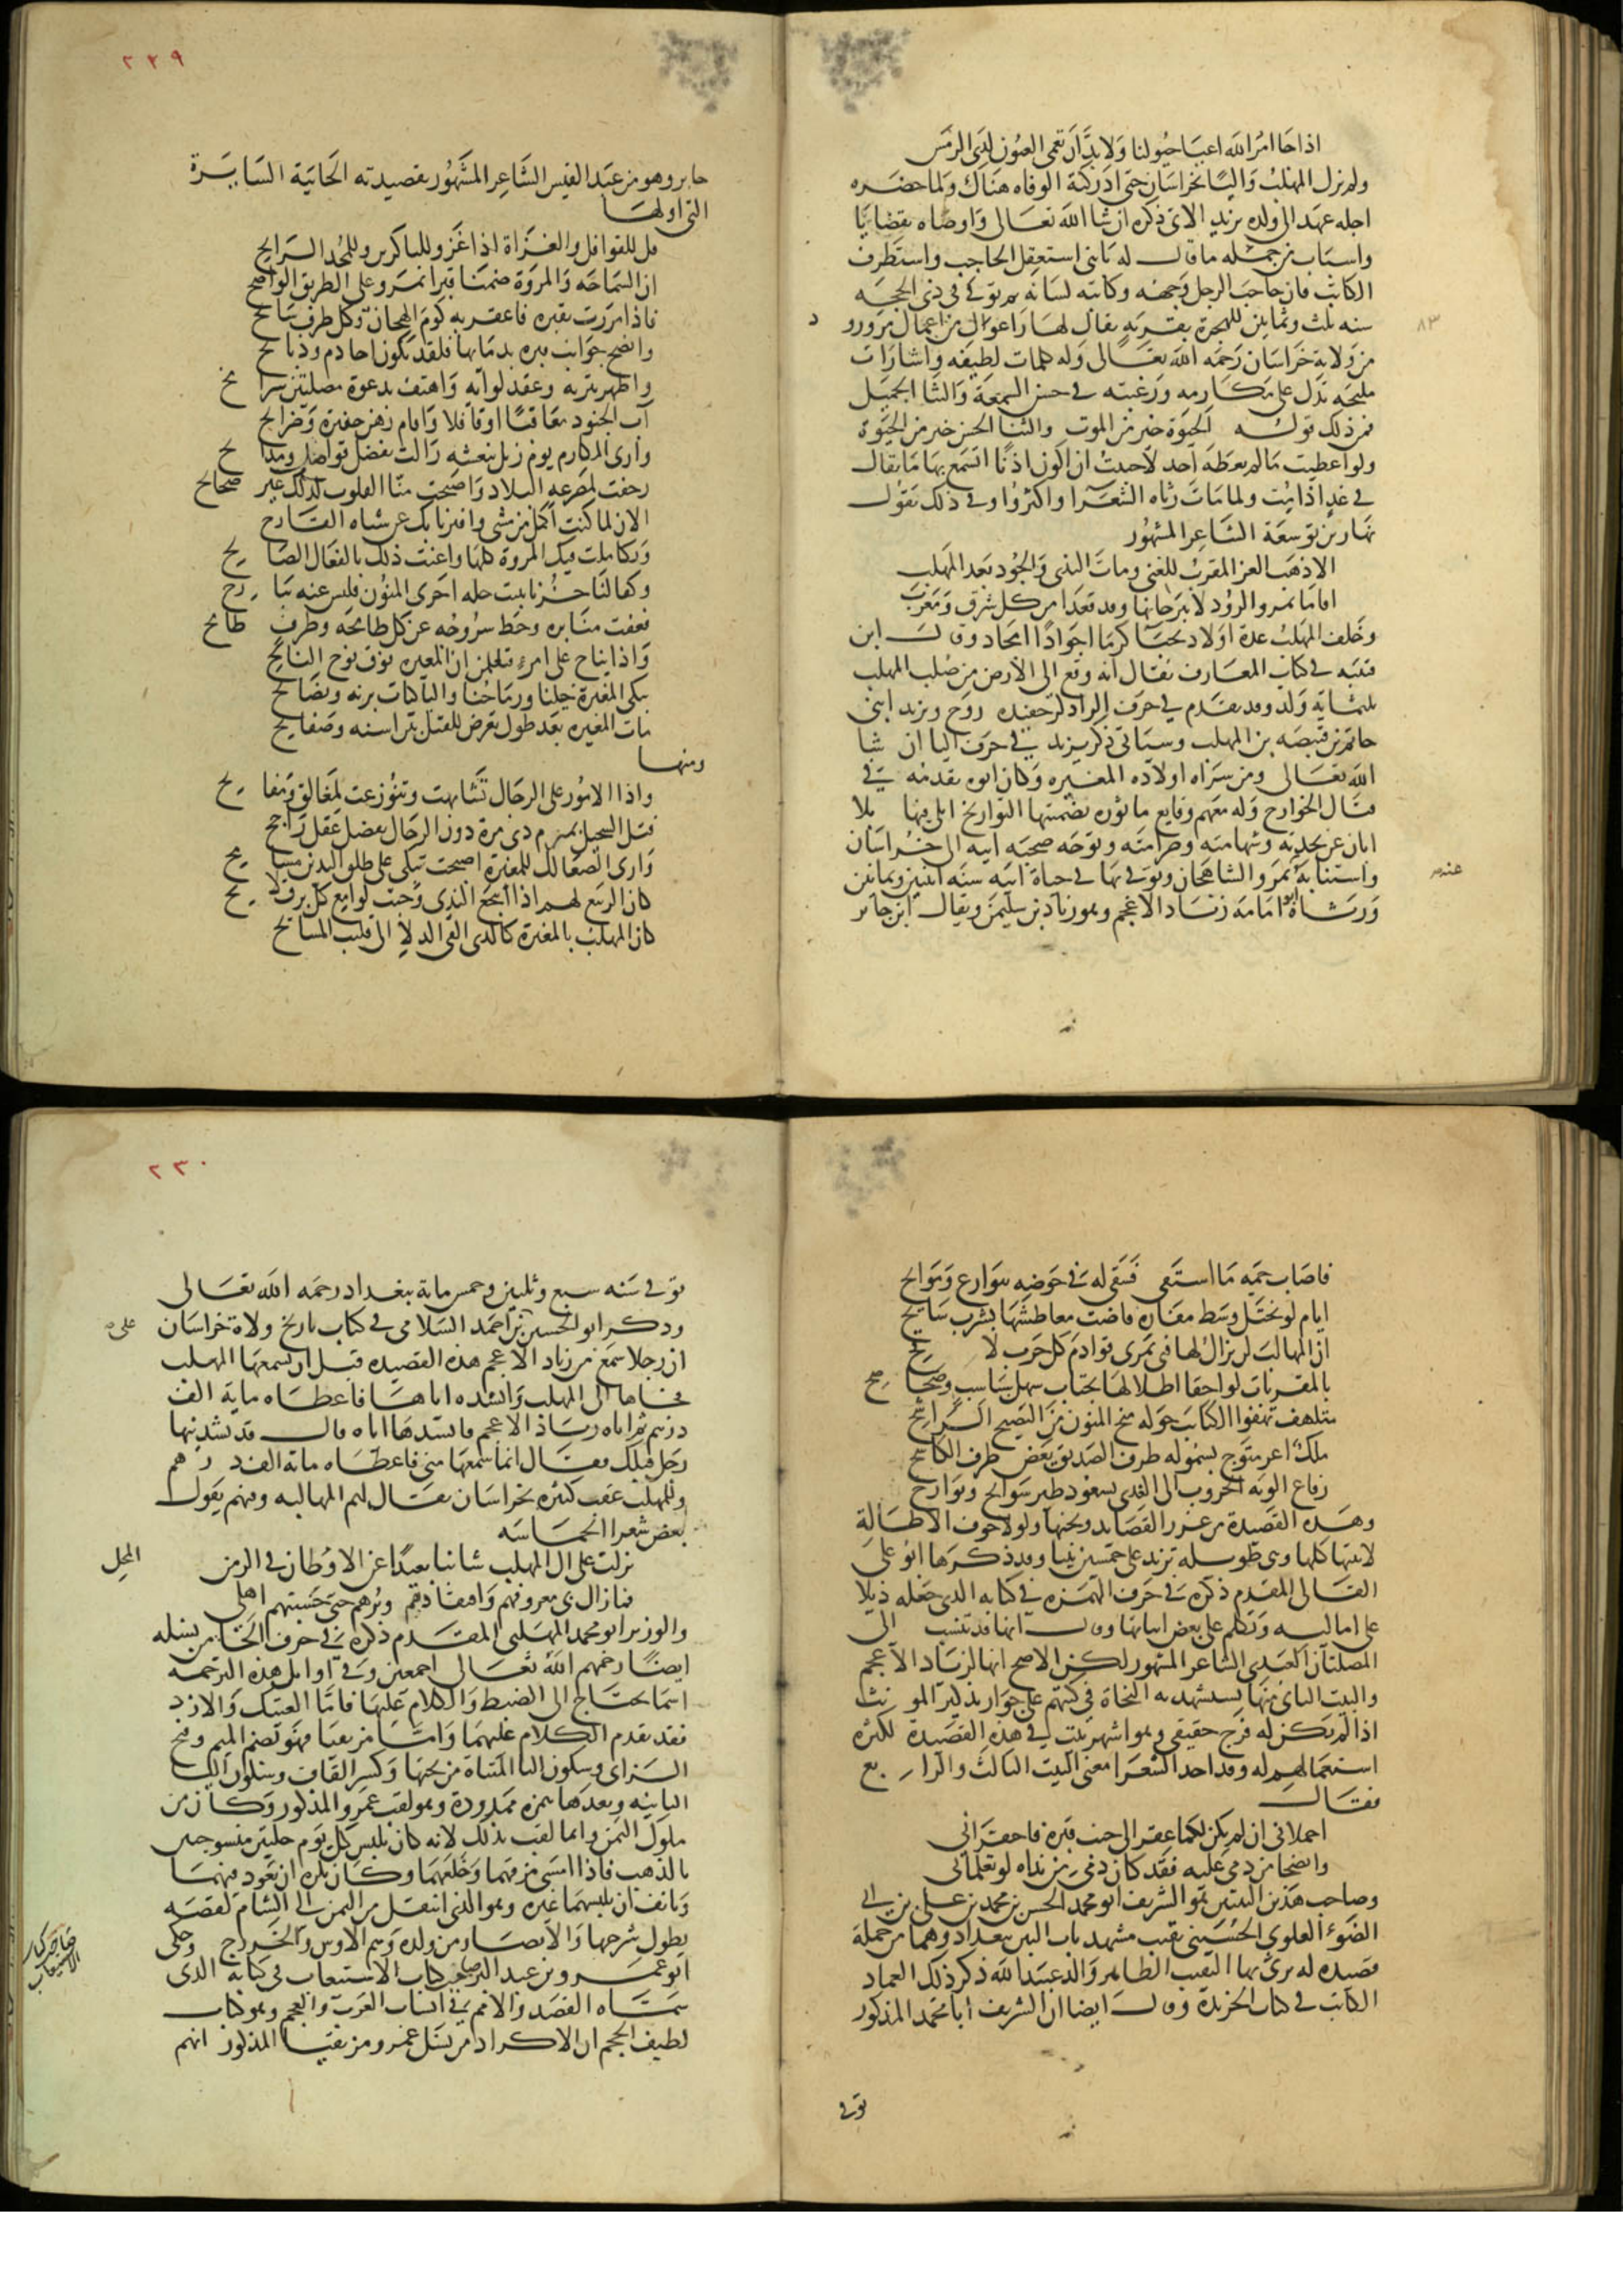 اذا جا امر الله اعيا خيولنا ولا بد ان تعمى العيون لدى الرمس
ولم يزل المهلب واليا بخراسان حتى ادركته الوفاه هناك ولما حضره
اجله عهد الى ولده يزيد الاتى ذكره ان شا الله تعالى واوصاه بقضايا
واسباب من جملة ما قال له يا بنى استعقل الحاجب واستظرف
الكاتب فان حاجب الرجل وجهه وكاتبه لسانه ثم توفى فى ذى الحجه
٨٣
سنه ثلث وثمانين للهجرة بقريه يقال لها زاغول من اعمال مرورو د
من ولاية خراسان رحمه الله تعالى وله كلمات لطيفه واشارات
مليحه تدل على مكارمه ورغبته فى حسن السمعة والثنا الجميل
فمن ذلك قوله الحيوة خير من الموت والثنا الحسن خير من الحيوة
ولو اعطيت ما لم يعطه احد لاحببت ان اكون اذنا اتسمع بها ما يقال
فى غد اذا مت ولما مات رثاه الشعرا واكثروا وفى ذلك يقول
نهار بن توسعة الشاعر المشهور
الا ذهب العز المقرب للغنى ومات الندى والجود بعد المهلب
اقاما بمرو الروذ لا يبرحانها وقد قعدا من كل شرق ومغرب
وخلف المهلب عدة اولاد نجبا كرما اجوادا امجادا وقال ابن
قتيبه فى كتاب المعارف يقال انه وقع الى الارض من صلب المهلب
ثلثماية ولد وقد تقدم فى حرف الرا ذكر حفيده روح ويزيد ابنى
حاتم بن قبيصه بن المهلب وسياتى ذكر يزيد فى حرف اليا ان شا
الله تعالى ومن سراه اولاده المغيره وكان ابوه يقدمه فى
قتال الخوارج وله معهم وقايع ماثوره تضمنتها التواريخ ابلى فيها بلا
ابان عن نجدته وشهامته وصرامته وتوجه صحبة ابيه الى خراسان
واستنابه عنه بمرو الشاهجان وتوفى بها فى حياة ابيه سنه اثنين وثمانين
ورثاه ابو امامة زياد الاعجم وهو زياد بن سليمن ويقال ابن جابر
٢٢٩
جابر وهو من عبد القيس الشاعر المشهور بقصيدته الحائية السايرة
التى اولها
قل للقوافل والغزاة اذا غزو وللباكرين وللمجد الرايح
ان السماحه والمروة ضمنا قبرا بمرو على الطريق الواضح
فاذا مررت بقبره فاعقر به كوم الهجان وكل طرف سابح
وانضح جوانب قبره بدمائها فلقد يكون اخا دم وذبائح
واظهر ببزه وعقد لوائه واهتف بدعوة مصلتين سرا مح
آب الجنود معاقبا او قافلا واقام رهن حفيرة وضرايح
وارى المكارم يوم زيل بنعشه زالت بفضل فواضل ومدا يح
رجفت لمصرعه البلاد واصبحت منا القلوب لذلك غير صحايح
الان لما كنت اكمل من مشى وافتر نابك عن شباه القارح
وتكاملت فيك المروة كلها واعنت ذلك بالفعال الصا لح
وكفا لنا حزنا ببيت حله اخرى المنون فليس عنه ببا رح
فعفت منابره وحط سروجه عن كل طامحه وطرف طامح
واذا يناح على امرئ فتعلمن ان المغيرة فوق نوح النايح
يبكى المغيرة خيلنا ورماحنا والباكيات برنه وتصايح
مات المغيره بعد طول تعرض للقتل بين اسنه وصفايح
ومنها
واذا الامور على الرجال تشابهت وتنوزعت بمغالق ومفا تح
فتل السحيل بمبرم ذى مرة دون الرجال بفضل عقل راجح
وارى الصعالك للمغيرة اصبحت تبكى على طلق اليدين مسا مح
كان الربيع لهم اذا انتجع الندى وخبت لوامع كل برق لا يح
كان المهلب بالمغيرة كالذى القى الدلا الى قليب المسايح
فاصاب جمه ما استقى فسقى له فى حوضه بنوازع ومواتح
ايام لو يختل وسط مفازه فاضت معاطشها بشرب سايح
ان المهالب لن يزال لها فتى يمرى قوادم كل حرب لا قح
بالمقربات لواحقا اطلالها يجتاب سهل سباسب وصحا صح
متلهفا تهفوا الكتايب حوله منح المنون من النضيح الراشح
ملك اعر متوج يسمو له طرف الصديق بعض طرف الكاشح
رفاع الويه الحروب الى العدى بسعود طير سوانح وبوارح
وهذه القصيدة من غرر القصايد ونخبها ولولا خوف الاطالة
لاثبتها كلها وهى طويله تزيد على خمسين بيتا وقد ذكرها ابو على
القالى المقدم ذكره فى حرف الهمزه فى كتابه الذى جعله ذيلا
على اماليه وتكلم على بعض ابياتها وقال انها قد تنسب الى
الصلتان العبدى الشاعر المشهور لكن الاصح انها لزياد الاعجم
والبيت الثانى منها يستشهد به النحاة فى كتبهم على جواز تذكير المو نث
اذا لم يكن له فرج حقيقى وهو اشهر بيت فى هذه القصيدة لكثرة
استعمالهم له وقد اخذ الشعرا معنى البيت الثالث والرا بع
فقال
احملانى ان لم يكن لكما عقر الى جنب قبره فاعقرانى
وانضحا من دمى عليه فقد كان دمى من نداه لو تعلمانى
وصاحب هذين البيتين هو الشريف ابو محمد الحسن بن محمد بن على بن ابى
الضوء العلوى الحسينى نقيب مشهد باب التبن ببغداد وهما من جملة
قصيده له يرثى بها النقيب الطاهر والد عبيد الله ذكر ذلك العماد
الكاتب فى كتاب الخريدة وقال ايضا ان الشريف ابا محمد المذكور
توفى
٢٣٠
توفى سنه سبع وثلثين وخمس مائة ببغداد رحمه الله تعالى
وذكر ابو الحسين على بن احمد السلامى فى كتاب تاريخ ولاة خراسان
ان رجلا سمع من زياد الاعجم هذه القصيده قبل ان يسمعها المهلب
فجاها الى المهلب وانشده اياها فاعطاه ماية الف
درهم ثم اتاه زياد الاعجم فانشدها اياه فقال قد نشدنيها
رجل قبلك فقال انما سمعها منى فاعطاه ماية الف در هم
وللمهلب عقب كثيره بخراسان يقال لهم المهالبه وفيهم يقول
بعض شعرا الحماسه
نزلت على ال المهلب شاتيا بعيدا عن الاوطان فى الزمن المحل
فما زال بى معروفهم وافتقادهم وبرهم حتى حسبتهم اهلى
والوزير ابو محمد المهلبى المقدم ذكره فى حرف الحا من نسله
ايضا رحمهم الله تعالى اجمعين وفى اوايل هذه الترجمه
اسما يحتاج الى الضبط والكلام عليها فاما العتيك والازد
فقد تقدم الكلام عليهما واما مزيقيا فهو بضم الميم وفتح
الزاى وسكون اليا المثناة من تحتها وكسر القاف وسكون اليا
الثانيه وبعدها همزه ممدودة وهو لقب عمرو المذكور وكان من
ملوك اليمن وانما لقب بذلك لانه كان يلبس كل يوم حلتين منسوجتين
بالذهب فاذا امسى مزقهما وخلعهما وكان يكره ان يعود فيهما
ويانف ان يلبسهما غيره وهو الذى انتقل من اليمن الى الشام لقصه
يطول شرحها والانصار من ولده وهم الاوس والخزرج وحكى
ابو عمرو بن عبد البر صاحب كتاب الاستيعاب فى كتابه الذى
صاحب كتاب
الاستيعاب
سماه القصد والامم فى انساب العرب والعجم وهو كتاب
لطيف الحجم ان الاكراد من نسل عمرو مزيقيا المذكور انهم